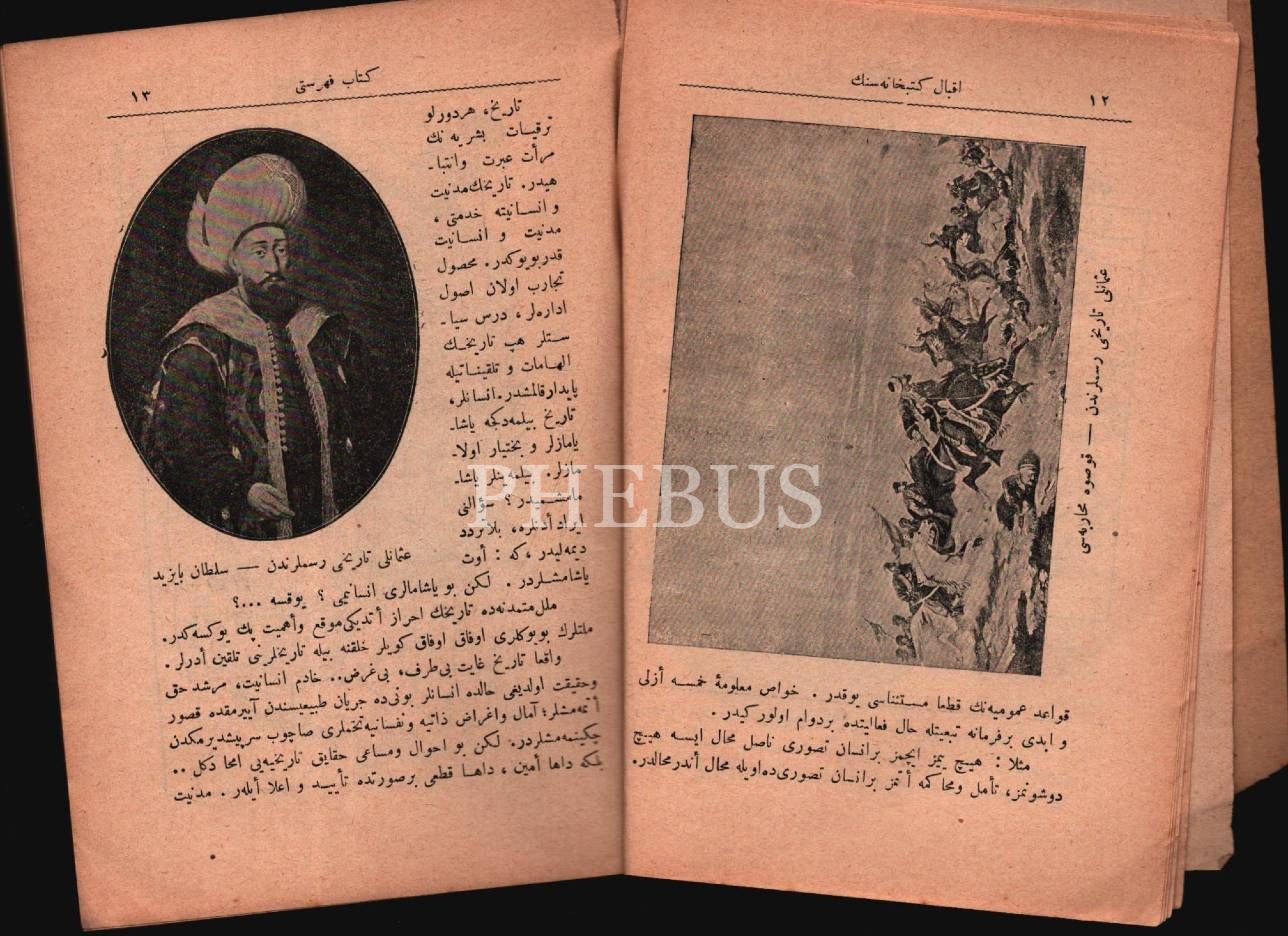 ١٢
اقبال كتبخانه‌سنك
عثمانلی تاریخی رسملرندن — قوصوه محاربه‌سی
قواعد عمومیه‌نك قطعا مستثناسی یوقدر . خواص معلومهٔ خمسه أزلی
و ابدی برفرمانه تبعیتله حال فعالیتده بردوام اولور كیدر .
مثلا : هیچ یمز ایچمز برانسان تصوری ناصل محال ایسه هیچ
دوشونمز، تأمل ومحاكمه أتمز برانسان تصوری‌ده‌اویله محال أندرمحالدر.
كتاب فهرستی
١٣
تاریخ، هردورلو
ترقیات بشریه‌نك
مرأت عبرت وانتبا-
هیدر. تاریخك‌مدنیت
و انسانیته خدمتی ،
مدنیت و انسانیت
قدربویوكدر. محصول
تجارب اولان اصول
اداره‌لر ، درس سیا-
ستلر هپ تاریخك
الهامات و تلقیناتیله
پایدارقالمشدر.انسانلر،
تاریخ بیلمه‌دكجه یاشا-
یامازلر و بختیار اولا-
مازلر. بیلمه‌ینلر یاشا-
مامشمیدر؟ سؤالنی
ایراد أدنلره، بلاتردد
دیمه‌لیدر ، كه : أوت
عثمانلی تاریخی رسملرندن — سلطان بایزید
یاشامشلردر . لكن بو یاشامالری انسانیمی ؟ یوقسه ...؟
ملل‌متمدنه‌ده تاریخك احراز أتدیكی‌موقع وأهمیت پك یوكسه‌كدر.
ملتلرك بویوكلری اوفاق اوفاق كویلر خلقنه بیله تاریخلرینی تلقین أدرلر .
واقعا تاریخ غایت بی‌طرف، بی‌غرض.. خادم انسانیت، مرشد حق
وحقیقت اولدیغی حالده انسانلر بونی‌ده جریان طبیعیسندن آییرمقده قصور
أتمه‌مشلر؛ آمال واغراض ذاتیه ونفسانیه‌تخملری صاچوب سرپیشدیرمكدن
چكینمه‌مشلردر. لكن بو احوال ومساعی حقایق تاریخیه‌یی امحا دكل ..
بلكه داها أمین ، داها قطعی برصورتده تأیید و اعلا أیله‌ر . مدنیت
PHEBUS